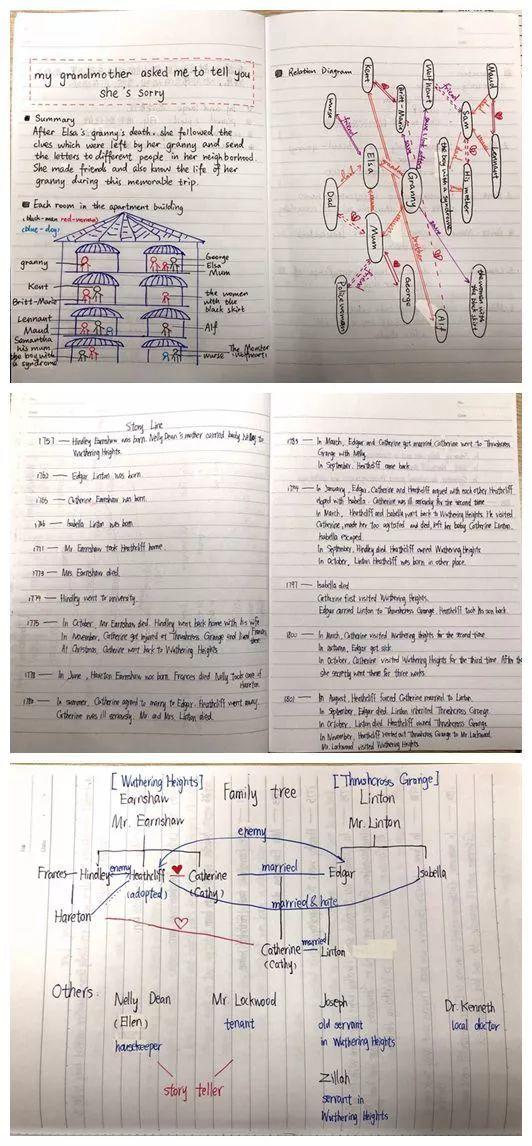 my grandmother asked me to tell you
she's sorry
Summary
After Elsa's granny's death, she followed the
clues which were left by her granny and send
the letters to different people in her neighborhood.
She made friends and also know the life of her
granny during this memorable trip.
Each room in the apartment building
(black-man red-woman)
(blue-dog)
granny
George
Elsa
Mum
Kent
Britt-Marie
the women
with the
black skirt
Lennart
Maud
Alf
Samantha
his mum
the boy with
a syndrome
nurse
The Monster
(Wolfheart)
Relation Diagram
Kent
Britt-Marie
Wolfheart
Maud
nurse
friend
friend
Sam
Lennart
the boy with a syndrome
His mother
Elsa
Granny
Dad
dad
Mum
mum
brother
friend
Policewoman
George
Alf
the women with
the black skirt
Story Line
1757 — Hindley Earnshaw was born. Nelly Dean's mother carried baby Nelly to
Wuthering Heights.
1762 — Edgar Linton was born.
1765 — Catherine Earnshaw was born.
Isabella Linton was born.
1771 — Mr. Earnshaw took Heathcliff home.
1773 — Mrs. Earnshaw died.
1774 — Hindley went to university.
1775 — In October, Mr. Earnshaw died. Hindley went back home with his wife
Frances
In November, Catherine got injured at Thrushcross Grange and lived there.
At Christmas, Catherine went back to Wuthering Heights
1778 — In June, Hareton Earnshaw was born. Frances died. Nelly took care of
Hareton.
1780 — In summer, Catherine agreed to marry to Edgar. Heathcliff went away.
Catherine was ill seriously. Mr. and Mrs. Linton died.
1783 — In March, Edgar and Catherine got married. Catherine went to Thrushcross
Grange with Nelly.
In September, Heathcliff came back.
1784 — In January, Edgar, Catherine and Heathcliff argued with each other. Heathcliff
eloped with Isabella. Catherine was ill seriously for the second time
In March, Heathcliff and Isabella went back to Wuthering Heights. He visited
Catherine, made her too agitated and died, left her baby Catherine Linton.
Isabella escaped.
In September, Hindley died. Heathcliff owned Wuthering Heights
In October, Linton Heathcliff was born in other place.
1797 — Isabella died
Catherine first visited Wuthering Heights.
Edgar carried Linton to Thrushcross Grange. Heathcliff took his son back.
1800 — In March, Catherine visited Wuthering Heights for the second time.
In autumn, Edgar got sick.
In October, Catherine visited Wuthering Heights for the third time. After that
she secretly went there for three weeks.
1801 — In August, Heathcliff forced Catherine married to Linton.
In September, Edgar died. Linton inherited Thrushcross Grange.
In October, Linton died. Heathcliff owned Thrushcross Grange.
In November, Heathcliff rented out Thrushcross Grange to Mr. Lockwood.
Mr. Lockwood visited Wuthering Heights.
[Wuthering Heights]
Earnshaw
Family tree
[Thrushcross Grange]
Linton
Mr. Earnshaw
Mr. Linton
enemy
Frances
Hindley
enemy
Heathcliff
(adopted)
Catherine
(Cathy)
married
Edgar
Isabella
married & hate
Hareton
Catherine
(Cathy)
married
Linton
Others.
Nelly Dean
(Ellen)
housekeeper
Mr. Lockwood
tenant
story teller
Joseph
old servant
in Wuthering Heights
Zillah
servant in
Wuthering Heights
Dr. Kenneth
local doctor